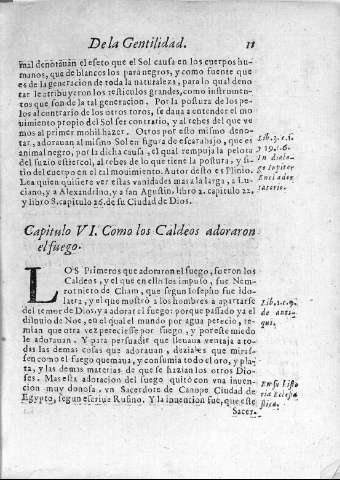 De la Gentilidad. 11
mal denotauan el efeto que el Sol causa en los cuerpos hu-
manos, que de blancos los para negros, y como fuente que
es de la generacion de toda la naturaleza, para lo qual deno
tar le atribuyeron los testiculos grandes, como instrumen-
tos que son de la tal generacion. Por la postura de los pe-
los al contrario de los otros toros, se daua a entender el mo
uimiento propio del Sol ser contrario, y al rebes del que ve
mos al primer mobil hazer. Otros por esto mismo deno-
tar, adorauan al mismo Sol en figura de escarabajo, que es
animal negro, por la dicha causa, el qual rempuja la pelota
del suzio estiercol, al rebes de lo que tiene la postura, y si-
tio del cuerpo en el tal mouimiento. Autor desto es Plinio.
Lea quien quisiere ver estas vanidades mas a la larga, a Lu-
ciano, y a Alexandrino, y a san Agustin, libro 2. capitulo 22.
y libro 8. capitulo 26. de su Ciudad de Dios.
Lib. 2. c. 1.
y 19. 1. 6.
In dialo-
go Iupiter.
En el ador
Capitulo VI. Como los Caldeos adoraron
el fuego.
LOS Primeros que adoraron el fuego, fueron los
Caldeos, y el que en ello los impuso, fue Nem-
rot nieto de Cham, que segun Iosepho fue Ido-
latra, y el que mostrò a los hombres a apartarse
del temor de Dios, y a adorar el fuego: porque passado ya el
diluuio de Noe, en el qual el mundo por agua perecio, te-
mian que otra vez pereciesse por fuego, y por este miedo
le adorauan. Y para persuadir que lleuaua ventaja a to-
das las demas cosas que adorauan, dezia les que miras-
sen como el fuego quemaua, y consumia todo el oro, y pla-
ta, y las demas materias de que se hazian los otros Dio-
ses. Mas esta adoracion del fuego quitò con vna inuen-
cion muy donosa, vn Sacerdote de Canope Ciudad de
Egypto, segun escriue Rufino. Y la inuencion fue, que este
Sacer-
Lib. 1. c. 9.
de anti-
qui.
En su Histo
ria Eclesia
stica.